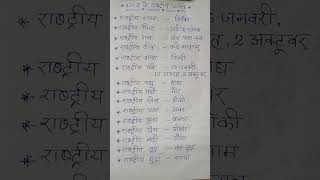 भारत के राष्ट्रीय प्रतीक
* राष्ट्रीय
राष्ट्रीय
राष्ट्रीय
राष्ट्रीय गान - जन गण मन
राष्ट्रीय गीत - वन्दे मातरम्
राष्ट्रीय भाषा - हिन्दी
राष्ट्रीय पर्व - 26 जनवरी,
15 अगस्त, 2 अक्टूबर
राष्ट्रीय पशु - बाघ
राष्ट्रीय पक्षी - मोर
राष्ट्रीय खेल - हॉकी
राष्ट्रीय फल - आम
राष्ट्रीय फूल - कमल
राष्ट्रीय
राष्ट्रीय नदी - गंगा
राष्ट्रीय वृक्ष
राष्ट्रीय मुद्रा - रुपया
जनवरी,
2 अक्टूबर